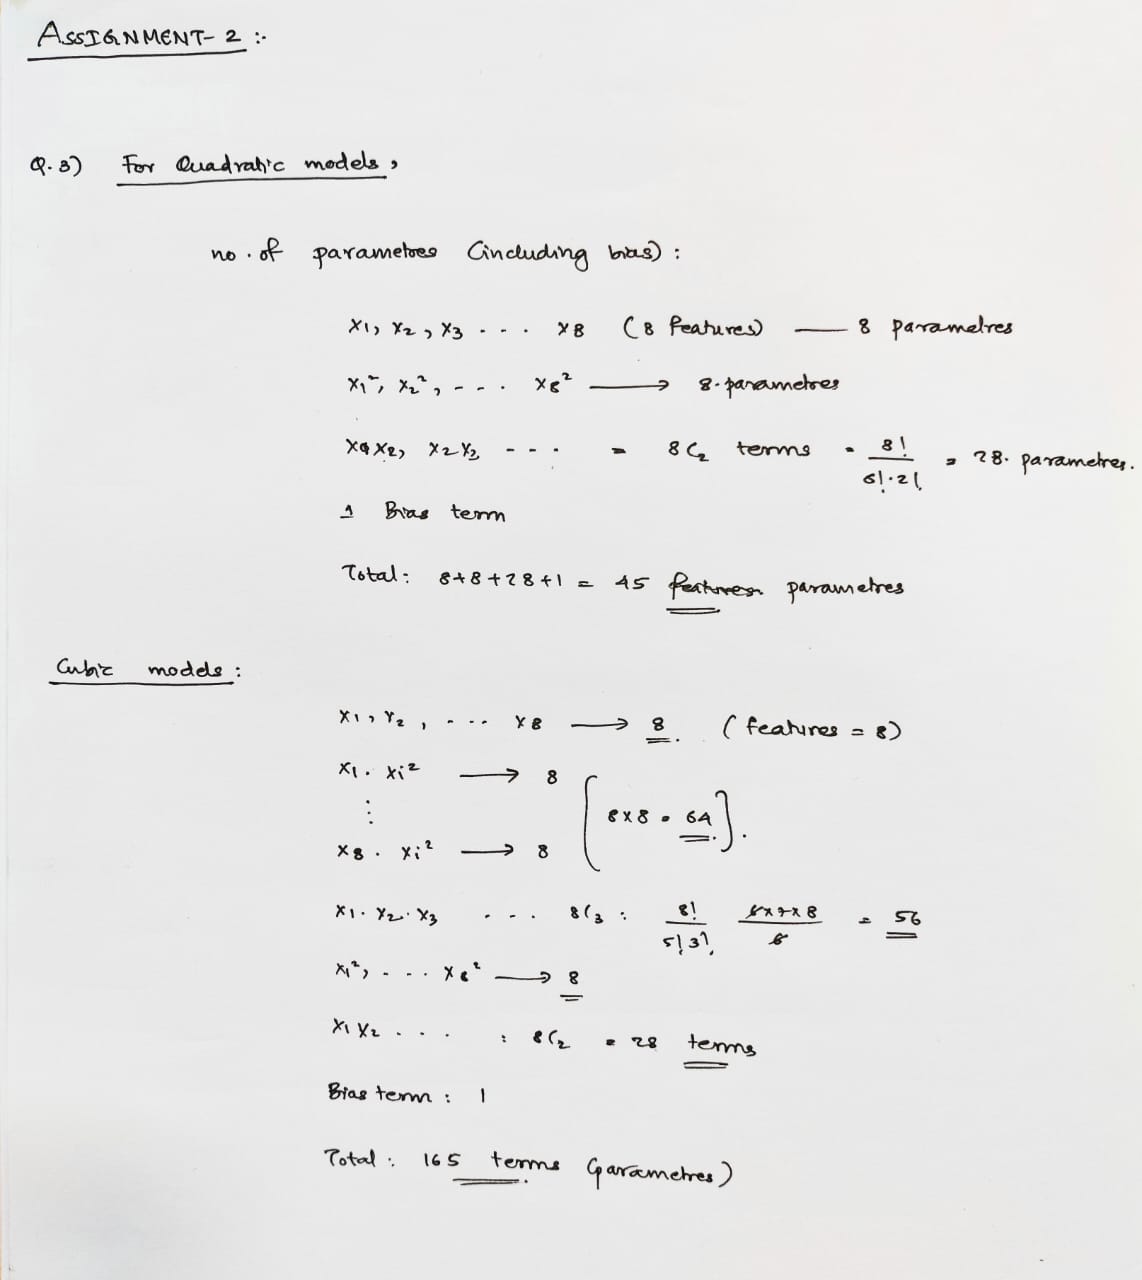 ASSIGNMENT- 2 :-
Q.3) For Quadratic models,
no. of parametres (including bias) :
x1, x2, x3 - - - x8 (8 features) — 8 parametres
x1², x2², - - - x8² ⟶ 8 parametres
x1x2, x2x3 - - - = 8C2 terms = 8!/6!·2! = 28 parametres.
1 Bias term
Total: 8+8+28+1 = 45 parametres
Cubic models :
x1, x2, - - - x8 ⟶ 8. (features = 8)
x1. xi² ⟶ 8
⋮ [8x8 = 64].
x8. xi² ⟶ 8
x1. x2. x3 - - - 8C3 : 8!/5!3! 6x7x8/6 = 56
x1², - - - x8² ⟶ 8
x1 x2 - - - : 8C2 = 28 terms
Bias term : 1
Total : 165 terms (parametres)